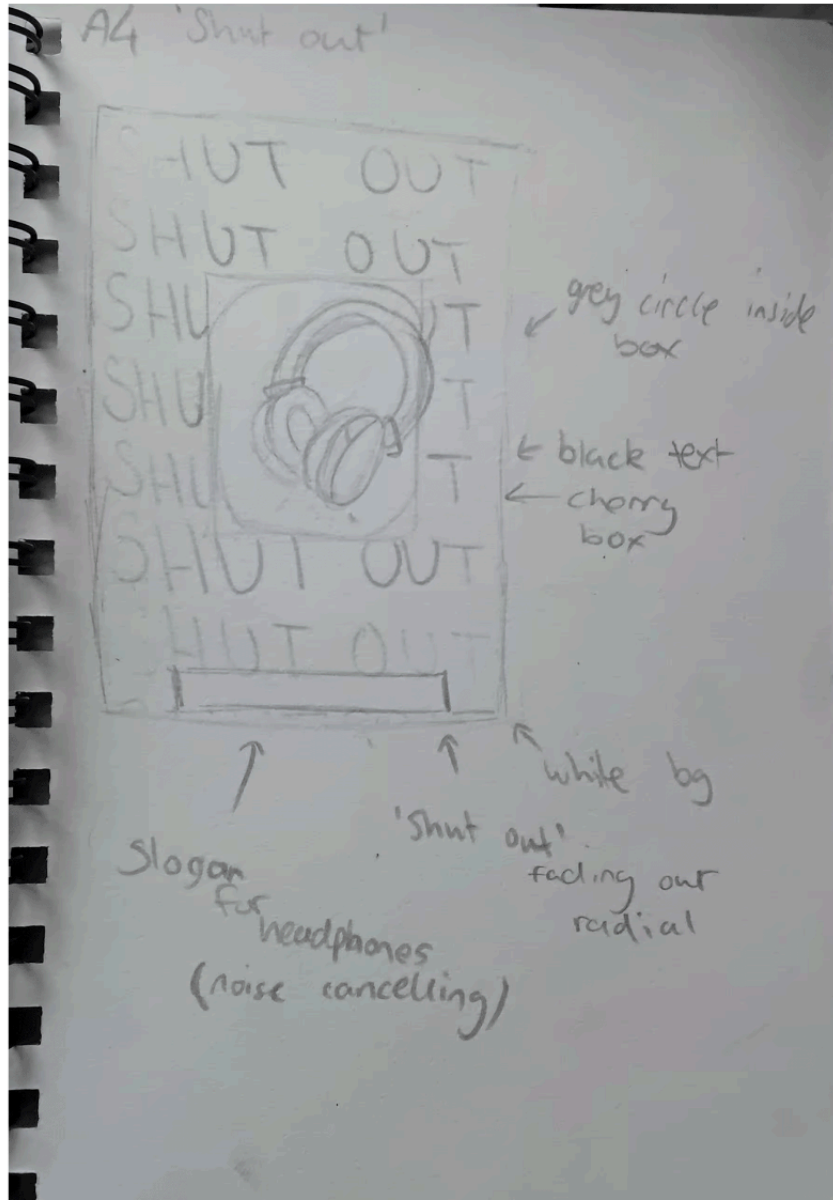 A4 'Shut out'
SHUT OUT
SHUT OUT
SHU UT
SHU T
SHU T
SHUT OUT
HUT OUT
grey circle inside
box
black text
cherry
box
white bg
'Shut out'
fading out
radial
Slogan
for
headphones
(noise cancelling)